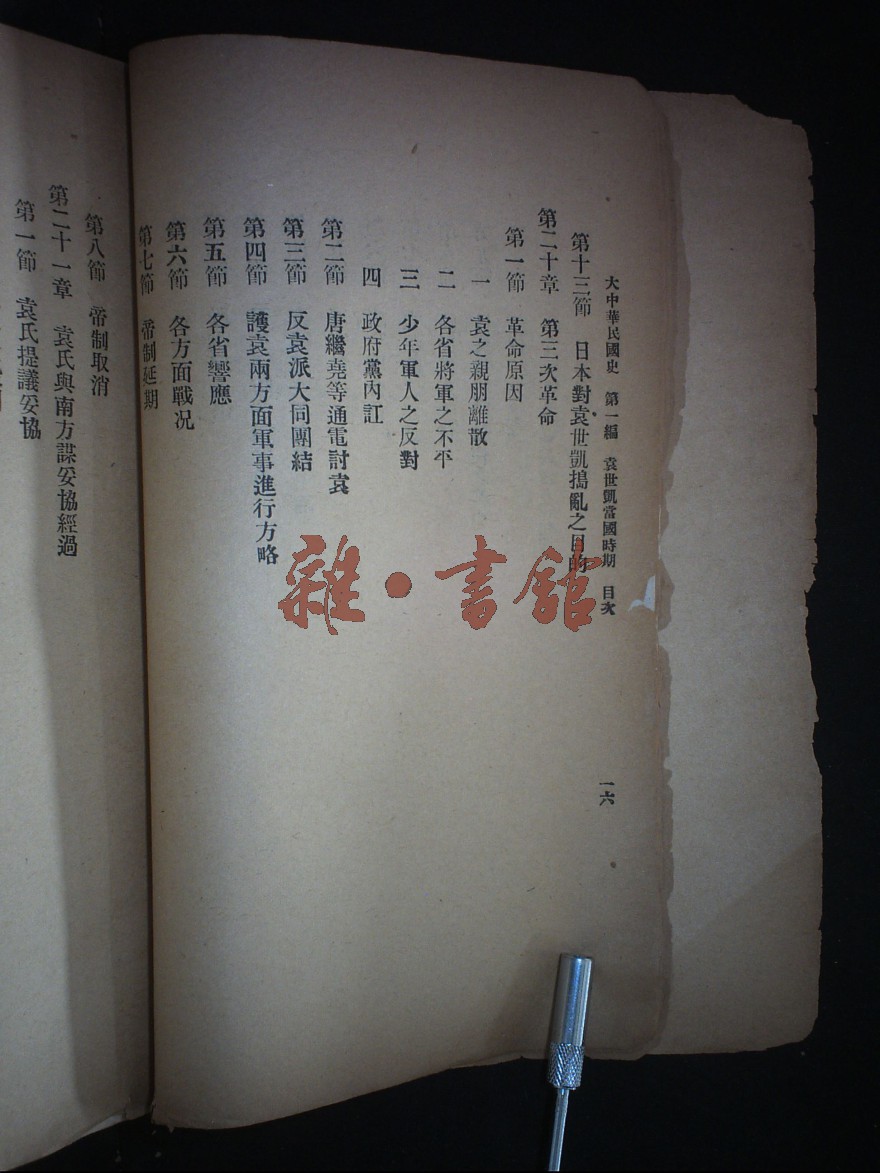 大中華民國史 第一編 袁世凱當國時期 目次
一六
第十三節 日本對袁世凱搗亂之目的
第二十章 第三次革命
第一節 革命原因
一 袁之親朋離散
二 各省將軍之不平
三 少年軍人之反對
四 政府黨內訌
第二節 唐繼堯等通電討袁
第三節 反袁派大同團結
第四節 護袁兩方面軍事進行方略
第五節 各省響應
第六節 各方面戰况
第七節 帝制延期
第八節 帝制取消
第二十一章 袁氏與南方謀妥協經過
第一節 袁氏提議妥協
雜·書館